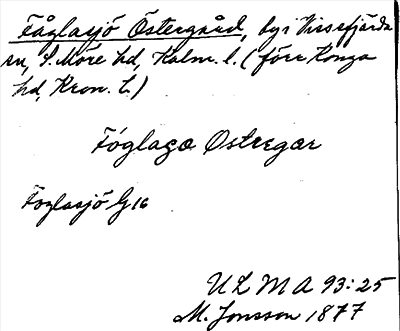 Fåglasjö Östergård, by i Vissefjärda
sn, S. Möre hd, Kalm. l. (förr Konga
hd, Kron. l.)
Fóglaga Ostregar
Foglasjö G 16
ULMA 93:25
M. Jonsson 1877